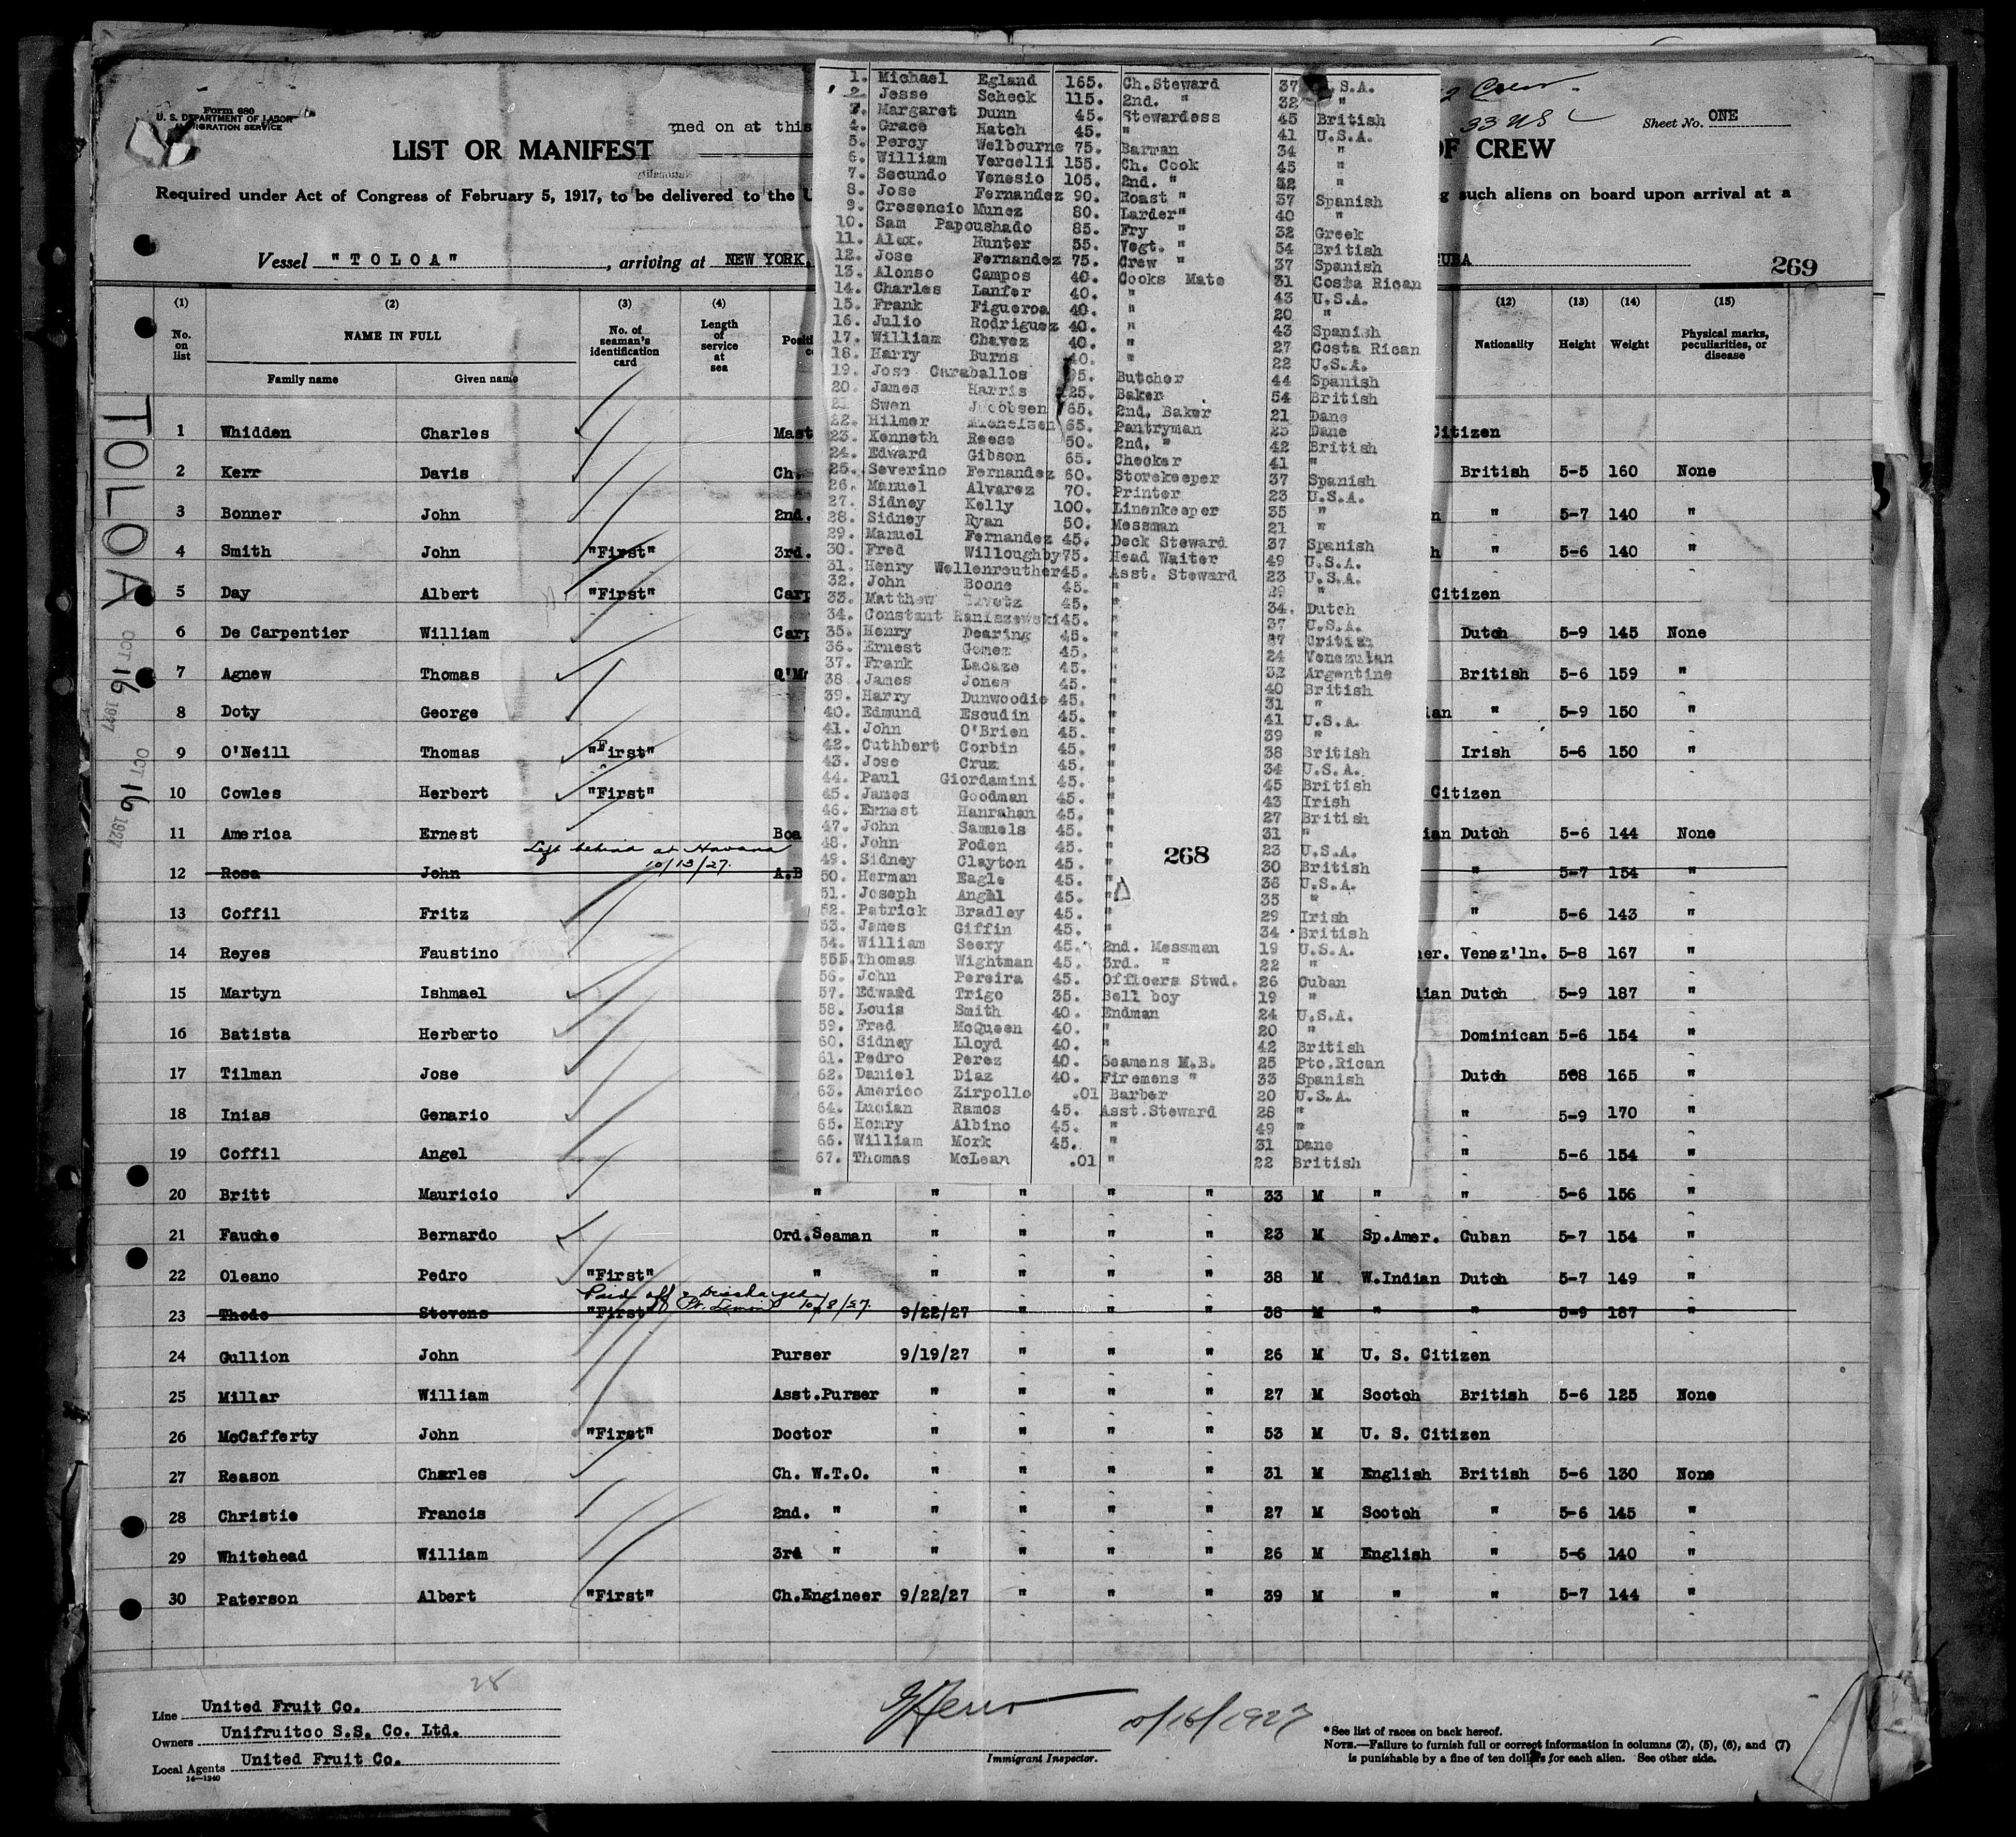 Form 680
U. S. DEPARTMENT OF LABOR
IMMIGRATION SERVICE
ned on at this
LIST OR MANIFEST
OF CREW
Crew
33 US
Sheet No. ONE
Required under Act of Congress of February 5, 1917, to be delivered to the U
such aliens on board upon arrival at a
Vessel "TOLOA", arriving at NEW YORK,
CUBA
269
1. Michael Egland 165. Ch.Steward 37 U.S.A.
2. Jesse Scheck 115. 2nd. " 32 "
3. Margaret Dunn 45. Stewardess 45 British
4. Grace Hatch 45. " 41 U.S.A.
5. Percy Welbourne 75. Barman 34 "
6. William Vercelli 155. Ch. Cook 45 "
7. Secundo Venesio 105. 2nd. " 32 "
8. Jose Fernandez 90. Roast " 37 Spanish
9. Cresencio Munez 80. Larder" 40 "
10. Sam Papoushado 85. Fry " 32 Greek
11. Alex. Hunter 55. Vegt. " 54 British
12. Jose Fernandez 75. Crew " 37 Spanish
13. Alonso Campos 40. Cooks Mate 31 Costa Rican
14. Charles Lanfer 40. " 43 U.S.A.
15. Frank Figueroa 40. " 20 "
16. Julio Rodriguez 40. " 43 Spanish
17. William Chavez 40. " 27 Costa Rican
18. Harry Burns 40. " 22 U.S.A.
19. Jose Caraballos 95. Butcher 44 Spanish
20. James Harris 125. Baker 54 British
21 Swen Jacobsen 65. 2nd. Baker 21 Dane
22. Hilmer 65. Pantryman 25 Dane
23. Kenneth Reese 50. 2nd. " 42 British
24. Edward Gibson 65. Checker 41 "
25. Severino Fernandez 60. Storekeeper 37 Spanish
26. Manuel Alvarez 70. Printer 23 U.S.A.
27. Sidney Kelly 100. Linenkeeper 35 "
28. Sidney Ryan 50. Messman 21 "
29. Manuel Fernandez 45. Deck Steward 37 Spanish
30. Fred Willoughby 75. Head Waiter 49 U.S.A.
31. Henry Wellenreuther 45. Asst. Steward 23 U.S.A.
32. John Boone 45. " 29 "
33. Matthew 45. " 34. Dutch
34. Constant Raniszewski 45. " 37 U.S.A.
35. Henry Dearing 45. " 37 Critian
36. Ernest Gomez 45. " 24 Venezulan
37. Frank Lacaze 45. " 32 Argentine
38 James Jones 45. " 40 British
39. Harry Dunwoodie 45. " 31 "
40. Edmund Escudin 45. " 41 U.S.A.
41. John O'Brien 45. " 39 "
42. Cuthbert Corbin 45. " 38 British
43. Jose Cruz 45. " 34 U.S.A.
44. Paul Giordamini 45. " 45 British
45. James Goodman 45. " 43 Irish
46. Ernest Hanrahan 45. " 27 British
47. John Samuels 45. " 31 "
48. John Foden 45. " 23 U.S.A.
49. Sidney Clayton 45. " 30 British
50. Herman Eagle 45. " 36 U.S.A.
51. Joseph Angel 45. " 35 "
52. Patrick Bradley 45. " 29 Irish
53. James Giffin 45. " 34 British
54. William Seery 45. 2nd. Messman 19 U.S.A.
555. Thomas Wightman 45. 3rd. " 22 "
56. John Pereira 45. Officers Stwd. 26 Cuban
57. Edward Trigo 35. Bell boy 19 "
58. Louis Smith 40. Endman 24 U.S.A.
59. Fred McQueen 40. " 20 "
60. Sidney Lloyd 40. " 42 British
61. Pedro Perez 40. Seamens M.B. 25 Pto.Rican
62. Daniel Diaz 40. Firemens " 33 Spanish
63. Americo Zirpollo .01 Barber 20 U.S.A.
64. Lucian Ramos 45. Asst.Steward 28 "
65. Henry Albino 45. " 49 "
66. William Mork 45. " 31 Dane
67. Thomas McLean .01 " 22 British
268
(1) (2) (3) (4) (12) (13) (14) (15)
No. on list
NAME IN FULL
Family name Given name
No. of seaman's identification card
Length of service at sea
Posit
Nationality Height Weight
Physical marks, peculiarities, or disease
TOLOA
OCT 16 1927
OCT 16 1927
1 Whidden Charles Mast Citizen
2 Kerr Davis Ch. British 5-5 160 None
3 Bonner John 2nd. n " 5-7 140 "
4 Smith John "First" 3rd. h " 5-6 140 "
5 Day Albert "First" Carp Citizen
6 De Carpentier William Carp Dutch 5-9 145 None
7 Agnew Thomas Q'M British 5-6 159 "
8 Doty George ian " 5-9 150 "
9 O'Neill Thomas "First" Irish 5-6 150 "
10 Cowles Herbert "First" Citizen
11 America Ernest Boa ian Dutch 5-6 144 None
Left behind at Havana
10/13/27.
12 Rosa John A.B " 5-7 154 "
13 Coffil Fritz " 5-6 143 "
14 Reyes Faustino er. Venez'ln. 5-8 167 "
15 Martyn Ishmael ian Dutch 5-9 187 "
16 Batista Herberto Dominican 5-6 154 "
17 Tilman Jose Dutch 508 165 "
18 Inias Genario " 5-9 170 "
19 Coffil Angel " 5-6 154 "
20 Britt Mauricio " " " " " 33 M " " 5-6 156 "
21 Fauche Bernardo Ord.Seaman " " " " 23 M Sp.Amer. Cuban 5-7 154 "
22 Oleano Pedro "First" " " " " " 38 M W.Indian Dutch 5-7 149 "
Paid off & Discharged
Pt. Limon 10/8/27.
23 Thode Stevens "First" 9/22/27 " " " 38 M " " 5-9 187 "
24 Gullion John Purser 9/19/27 " " " 26 M U. S. Citizen
25 Millar William Asst.Purser " " " " 27 M Scotch British 5-6 125 None
26 McCafferty John "First" Doctor " " " " 53 M U. S. Citizen
27 Reason Charles Ch. W.T.O. " " " " 31 M English British 5-6 130 None
28 Christie Francis 2nd. " " " " " 27 M Scotch " 5-6 145 "
29 Whitehead William 3rd " " " " " 26 M English " 5-6 140 "
30 Paterson Albert "First" Ch.Engineer 9/22/27 " " " 39 M " " 5-7 144 "
28
Line United Fruit Co.
Owners Unifruitco S.S. Co. Ltd.
Local Agents United Fruit Co.
14-1240
10/16/1927
Immigrant Inspector.
*See list of races on back hereof.
NOTE.—Failure to furnish full or correct information in columns (2), (5), (6), and (7)
is punishable by a fine of ten dollars for each alien. See other side.